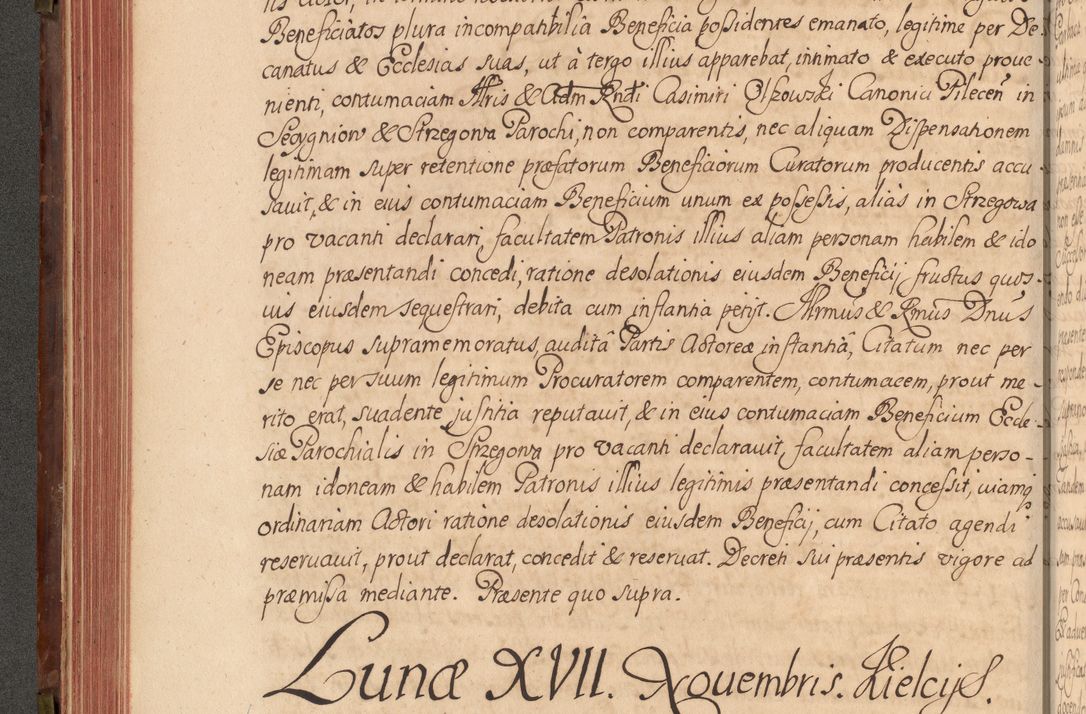 Beneficiatos plura incompatibilia Beneficia possidentes emanato, legitime per De
canatus & Ecclesias suas, ut à tergo illius apparebat, intimato & executo prove
nienti, contumaciam Mris & Adm Rndi Casimiri Olszowski Canonici Pilecen in
& Strzegowa Parochi, non comparentis, nec aliquam Dispensationem
legitimam super retentione præfatorum Beneficiorum Curatorum producentis accu
sauit, & in eius contumaciam Beneficium unum ex possessis, aliàs in Strzegowa
pro vacanti declarari, facultatem Patronis illius aliam personam habilem & ido
neam præsentandi concedi, ratione desolationis eiusdem Beneficij fructus quos
uis eiusdem sequestrari, debita cum instantia petijt. Illrmus & Rmus Dnus
Episcopus supramemoratus, auditâ Partis Actoreæ instantiâ, Citatum nec per
se nec per suum legitimum Procuratorem comparentem, contumacem, prout me
rito erat, suadente justitia reputauit, & in eius contumaciam Beneficium Eccle
siæ Parochialis in Strzegowa pro vacanti declarauit, facultatem aliam perso-
nam idoneam & habilem Patronis illius legitimis præsentandi concessit, uiamq
ordinariam Actori ratione desolationis eiusdem Beneficij, cum Citato agendi
reservauit, prout declarat, concedit & reservat. Decreti sui præsentis vigore ad
præmissa mediante. Præsente quo supra.
Lunæ XVII. Novembris. Kielcijs.